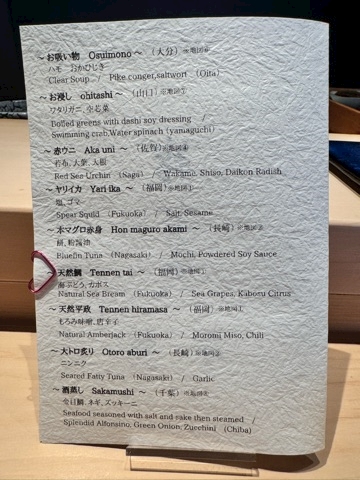 ～お吸い物 Osuimono～ （大分）※地図⑥
ハモ おかひじき
Clear Soup / Pike conger,saltwort （Oita）
～お浸し ohitashi～ （山口）※地図
ワタリガニ, 空芯菜
Boiled greens with dashi soy dressing /
Swimming crab,Water spinach (yamaguchi)
～赤ウニ Aka uni～ （佐賀）※地図
若布, 大葉, 大根
Red Sea Urchin （Saga） / Wakame, Shiso, Daikon Radish
～ヤリイカ Yari ika～ （福岡）※地図①
塩, ゴマ
Spear Squid （Fukuoka） / Salt, Sesame
～本マグロ赤身 Hon maguro akami～ （長崎）※地図
餅, 粉醤油
Bluefin Tuna （Nagasaki） / Mochi, Powdered Soy Sauce
～天然鯛 Tennen tai～ （福岡）※地図
海ぶどう, カボス
Natural Sea Bream （Fukuoka） / Sea Grapes, Kabosu Citrus
～天然平政 Tennen hiramasa～ （福岡）※地図
もろみ味噌, 唐辛子
Natural Amberjack （Fukuoka） / Moromi Miso, Chili
～大トロ炙り Otoro aburi～ （長崎）※地図
ニンニク
Seared Fatty Tuna （Nagasaki） / Garlic
～酒蒸し Sakamushi～ （千葉）※地図
金目鯛, ネギ, ズッキーニ
Seafood seasoned with salt and sake then steamed /
Splendid Alfonsino, Green Onion, Zucchini (Chiba)